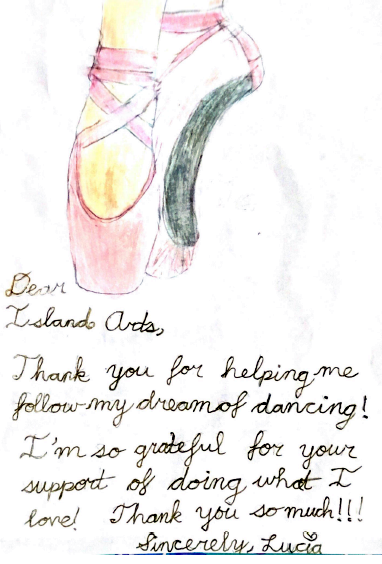 Dear
Island Arts,
Thank you for helping me
follow my dream of dancing!
I'm so grateful for your
support of doing what I
love! Thank you so much!!!
Sincerely, Lucia